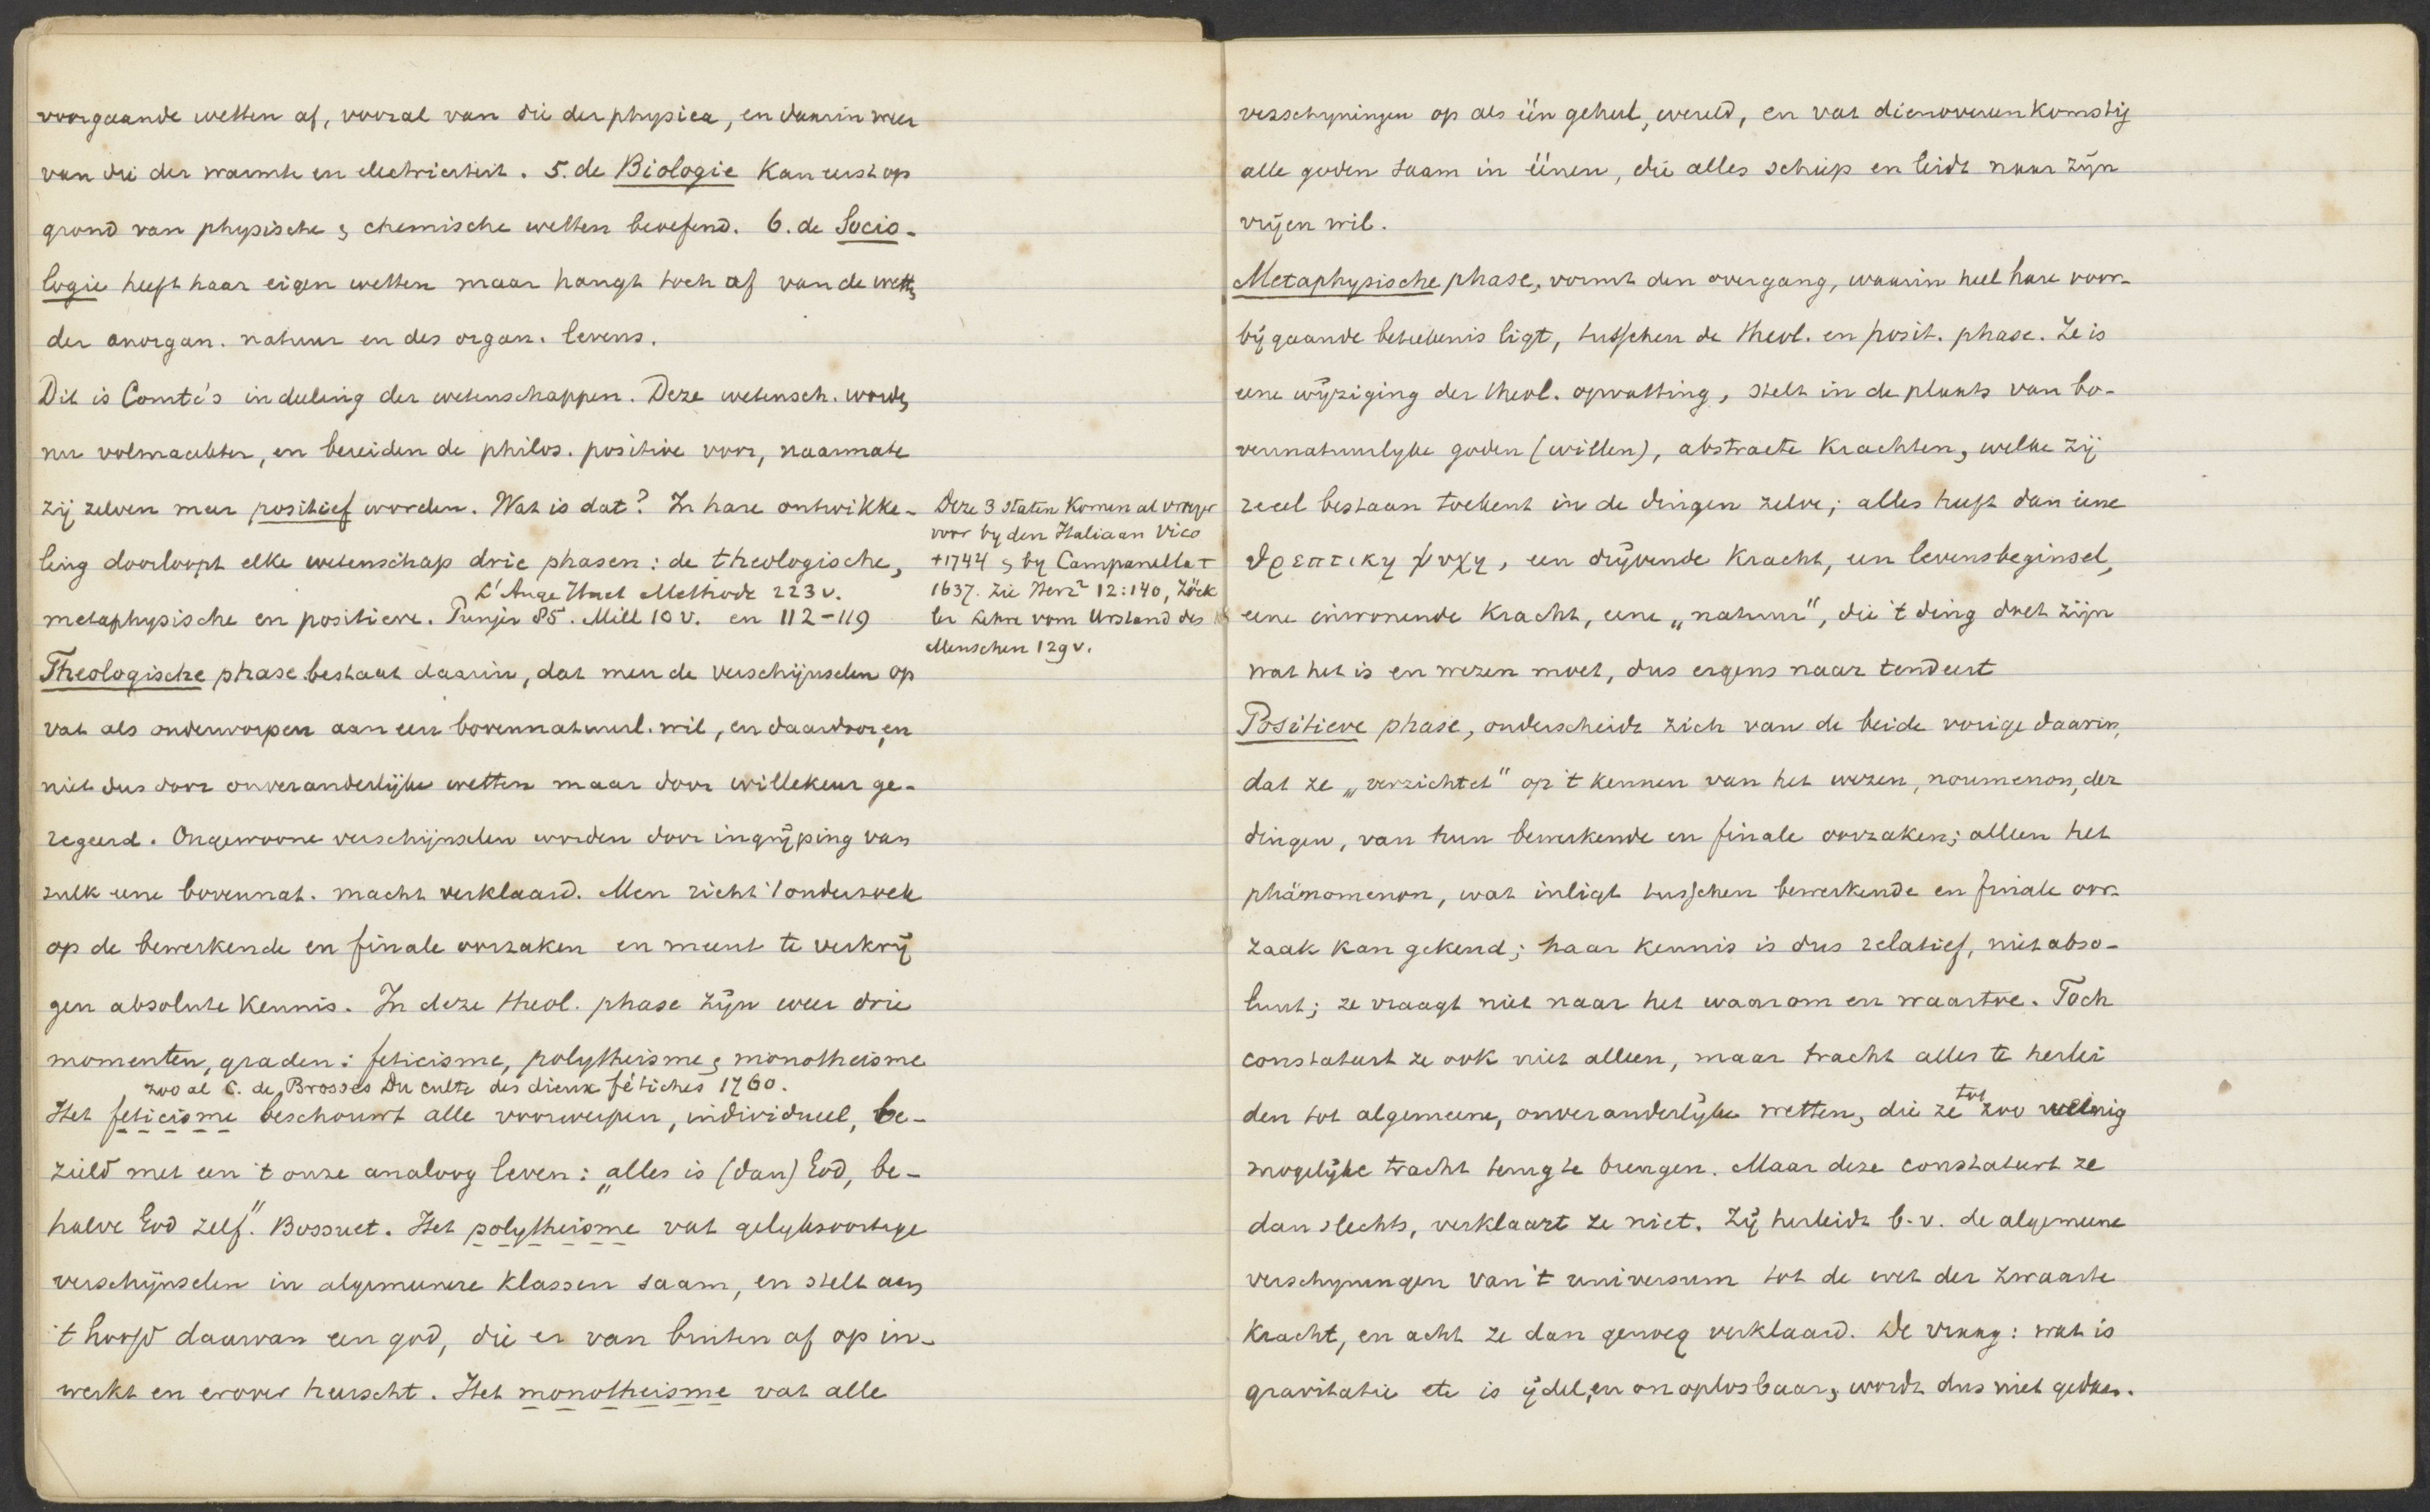 voorgaande wetten af, vooral van die der physica, en daarin weer
van die der warmte en electriciteit. 5. de Biologie kan eerst op
grond van physische & chemische wetten beoefend. 6. de Socio-
logie heeft haar eigen wetten maar hangt toch af van de wetten
der anorgan. natuur en des organ. levens.
Dit is Comte's indeeling der wetenschappen. Deze wetensch. worden
nu volmaakter, en bereiden de philos. positive voor, naarmate
zij zelven meer positief worden. Wat is dat? In hare ontwikke-
ling doorloopt elke wetenschap drie phasen: de theologische,
L'Ange Huet Methode 223 v.
metaphysische en positieve. Punjer 85. Mill 10 v. en 112-119
Theologische phase bestaat daarin, dat men de verschijnselen op
vat als onderworpen aan een bovennatuurl. wil, en daardoor, en
niet dus door onveranderlijke wetten maar door willekeur ge-
regeerd. Ongewoone verschijnselen worden door ingrijping van
zulk eene bovennat. macht verklaard. Men richt 't onderzoek
op de bewerkende en finale oorzaken en meent te verkrij
gen absolute kennis. In deze theol. phase zijn weer drie
momenten, graden: feticisme, polytheisme & monotheisme
zoo al C. de Brosses Du culte des dieux fétiches 1760.
Het feticisme beschouwt alle voorwerpen, individueel, be-
zield met een 't onze analoog leven: „alles is (dan) God, be-
halve God zelf." Bossuet. Het polytheisme vat gelyksoortige
verschijnselen in algemeenere klassen saam, en stelt aan
't hoofd daarvan een god, die er van buiten af op in-
werkt en erover heerscht. Het monotheisme vat alle
Deze 3 staten komen al vroeger
voor by den Italiaan Vico
+1744 & by Campanella +
1637. Zie Herz² 12:140, Zöck
ler Lehre vom Urstand des
Menschen 129 v.
verschyningen op als één geheel, wereld, en vat dienovereenkomstig
alle goden saam in éénen, die alles schiep en leidt naar zijn
vrijen wil.
Metaphysische phase, vormt den overgang, waarin heel hare voor-
bijgaande beteekenis ligt, tusschen de theol. en posit. phase. Ze is
eene wijziging der theol. opvatting, stelt in de plaats van bo-
vennatuurlyke goden (willen), abstracte krachten, welke zij
reeel bestaan toekent in de dingen zelve; alles heeft dan eene
θρεπτικη ψυχη, een drijvende kracht, een levensbeginsel,
eene inwonende kracht, eene „natuur", die 't ding doet zijn
wat het is en wezen moet, dus ergens naar tendeert
Positieve phase, onderscheidt zich van de beide vorige daarin,
dat ze „verzichtet" op 't kennen van het wezen, noumenon, der
dingen, van hun bewerkende en finale oorzaken; alleen het
phänomenon, wat inligt tusschen bewerkende en finale oor-
zaak kan gekend; haar kennis is dus relatief, niet abso-
luut; ze vraagt niet naar het waarom en waartoe. Toch
constateert ze ook niet alleen, maar tracht alles te herlei
den tot algemeene, onveranderlijke wetten, die ze tot zoo weinig
mogelijke tracht terug te brengen. Maar deze constateert ze
dan slechts, verklaart ze niet. Zij herleidt b.v. de algemeene
verschyningen van 't universum tot de wet der zwaarte
kracht, en acht ze dan genoeg verklaard. De vraag: wat is
gravitatie etc is ijdel, en onoplosbaar, wordt dus niet gedaan.